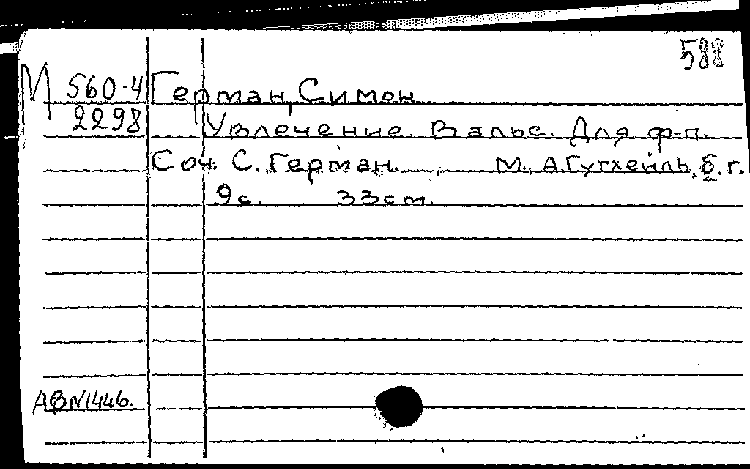 588
М 560-4 Герман, Симон
2298 Увлечение. Вальс. Для ф-п.
Соч. С. Герман. М. А.Гутхейль, б. г.
9с. 33см.
АВN1446.